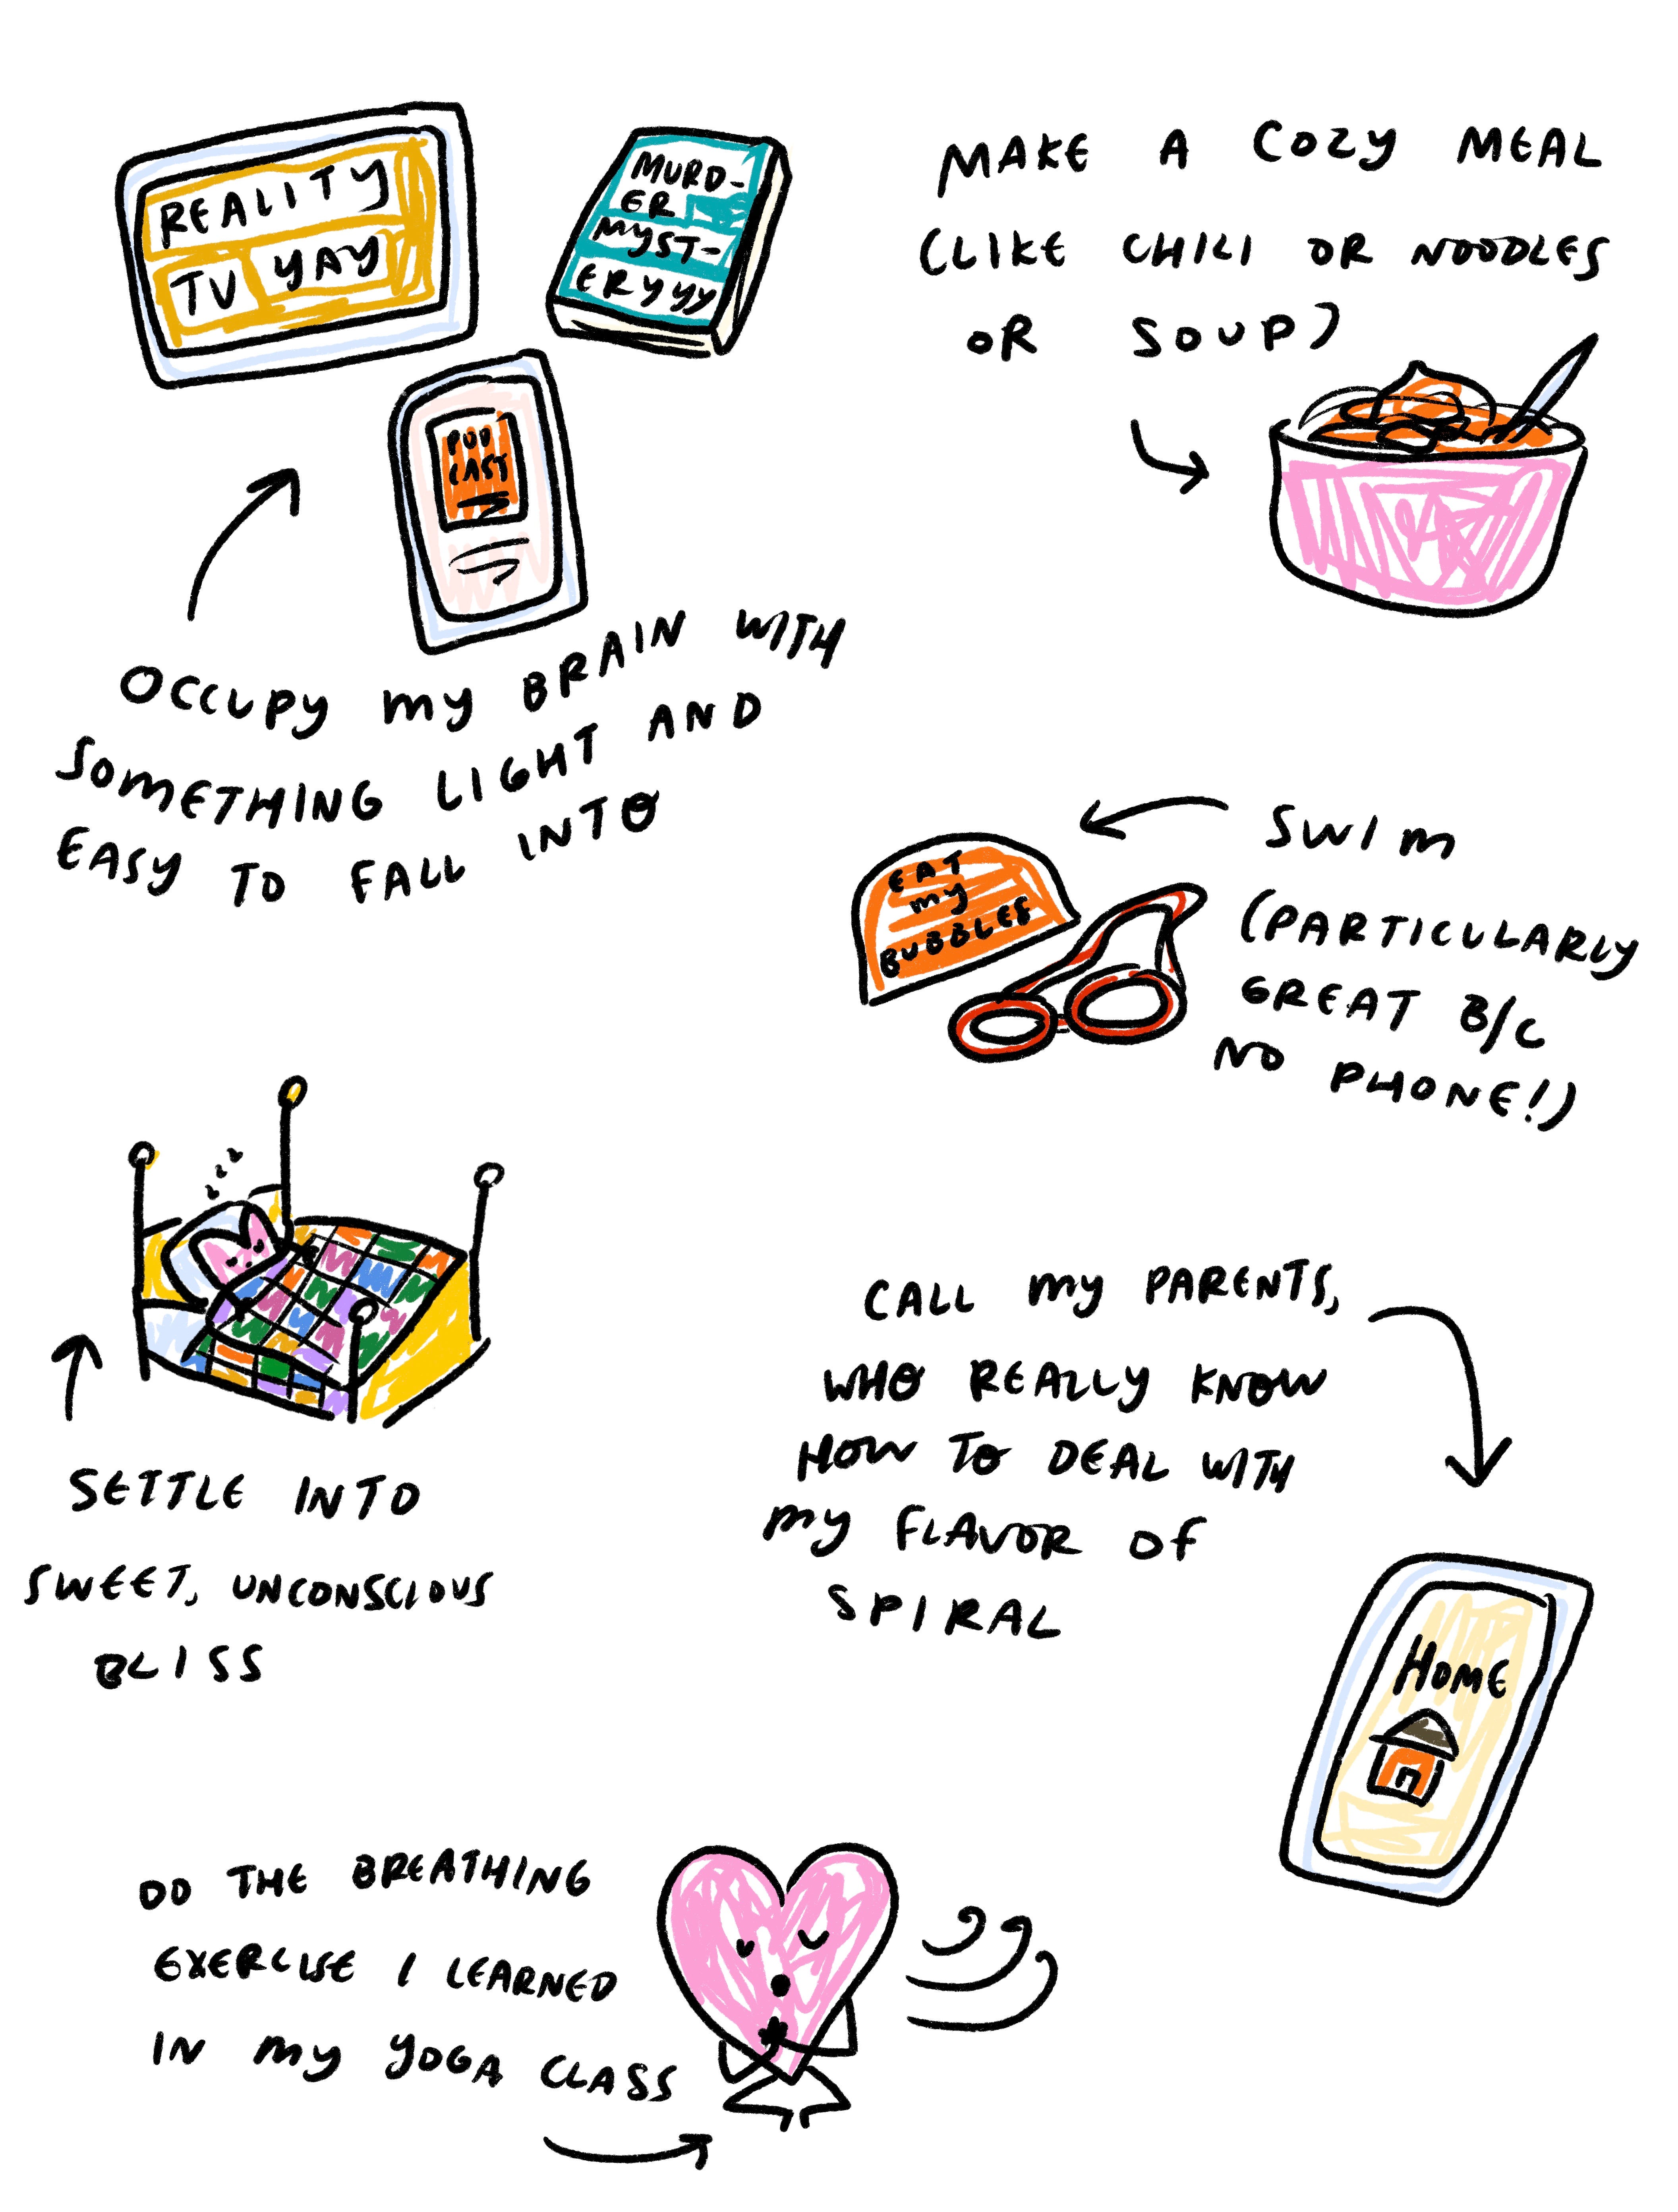 REALITY
TV YAY
MURD-
ER
MYST-
ERYYY
POD
CAST
OCCUPY MY BRAIN WITH
SOMETHING LIGHT AND
EASY TO FALL INTO
MAKE A COZY MEAL
(LIKE CHILI OR NOODLES
OR SOUP)
EAT
MY
BUBBLES
SWIM
(PARTICULARLY
GREAT B/C
NO PHONE!)
SETTLE INTO
SWEET, UNCONSCIOUS
BLISS
CALL MY PARENTS,
WHO REALLY KNOW
HOW TO DEAL WITH
MY FLAVOR OF
SPIRAL
HOME
DO THE BREATHING
EXERCISE I LEARNED
IN MY YOGA CLASS